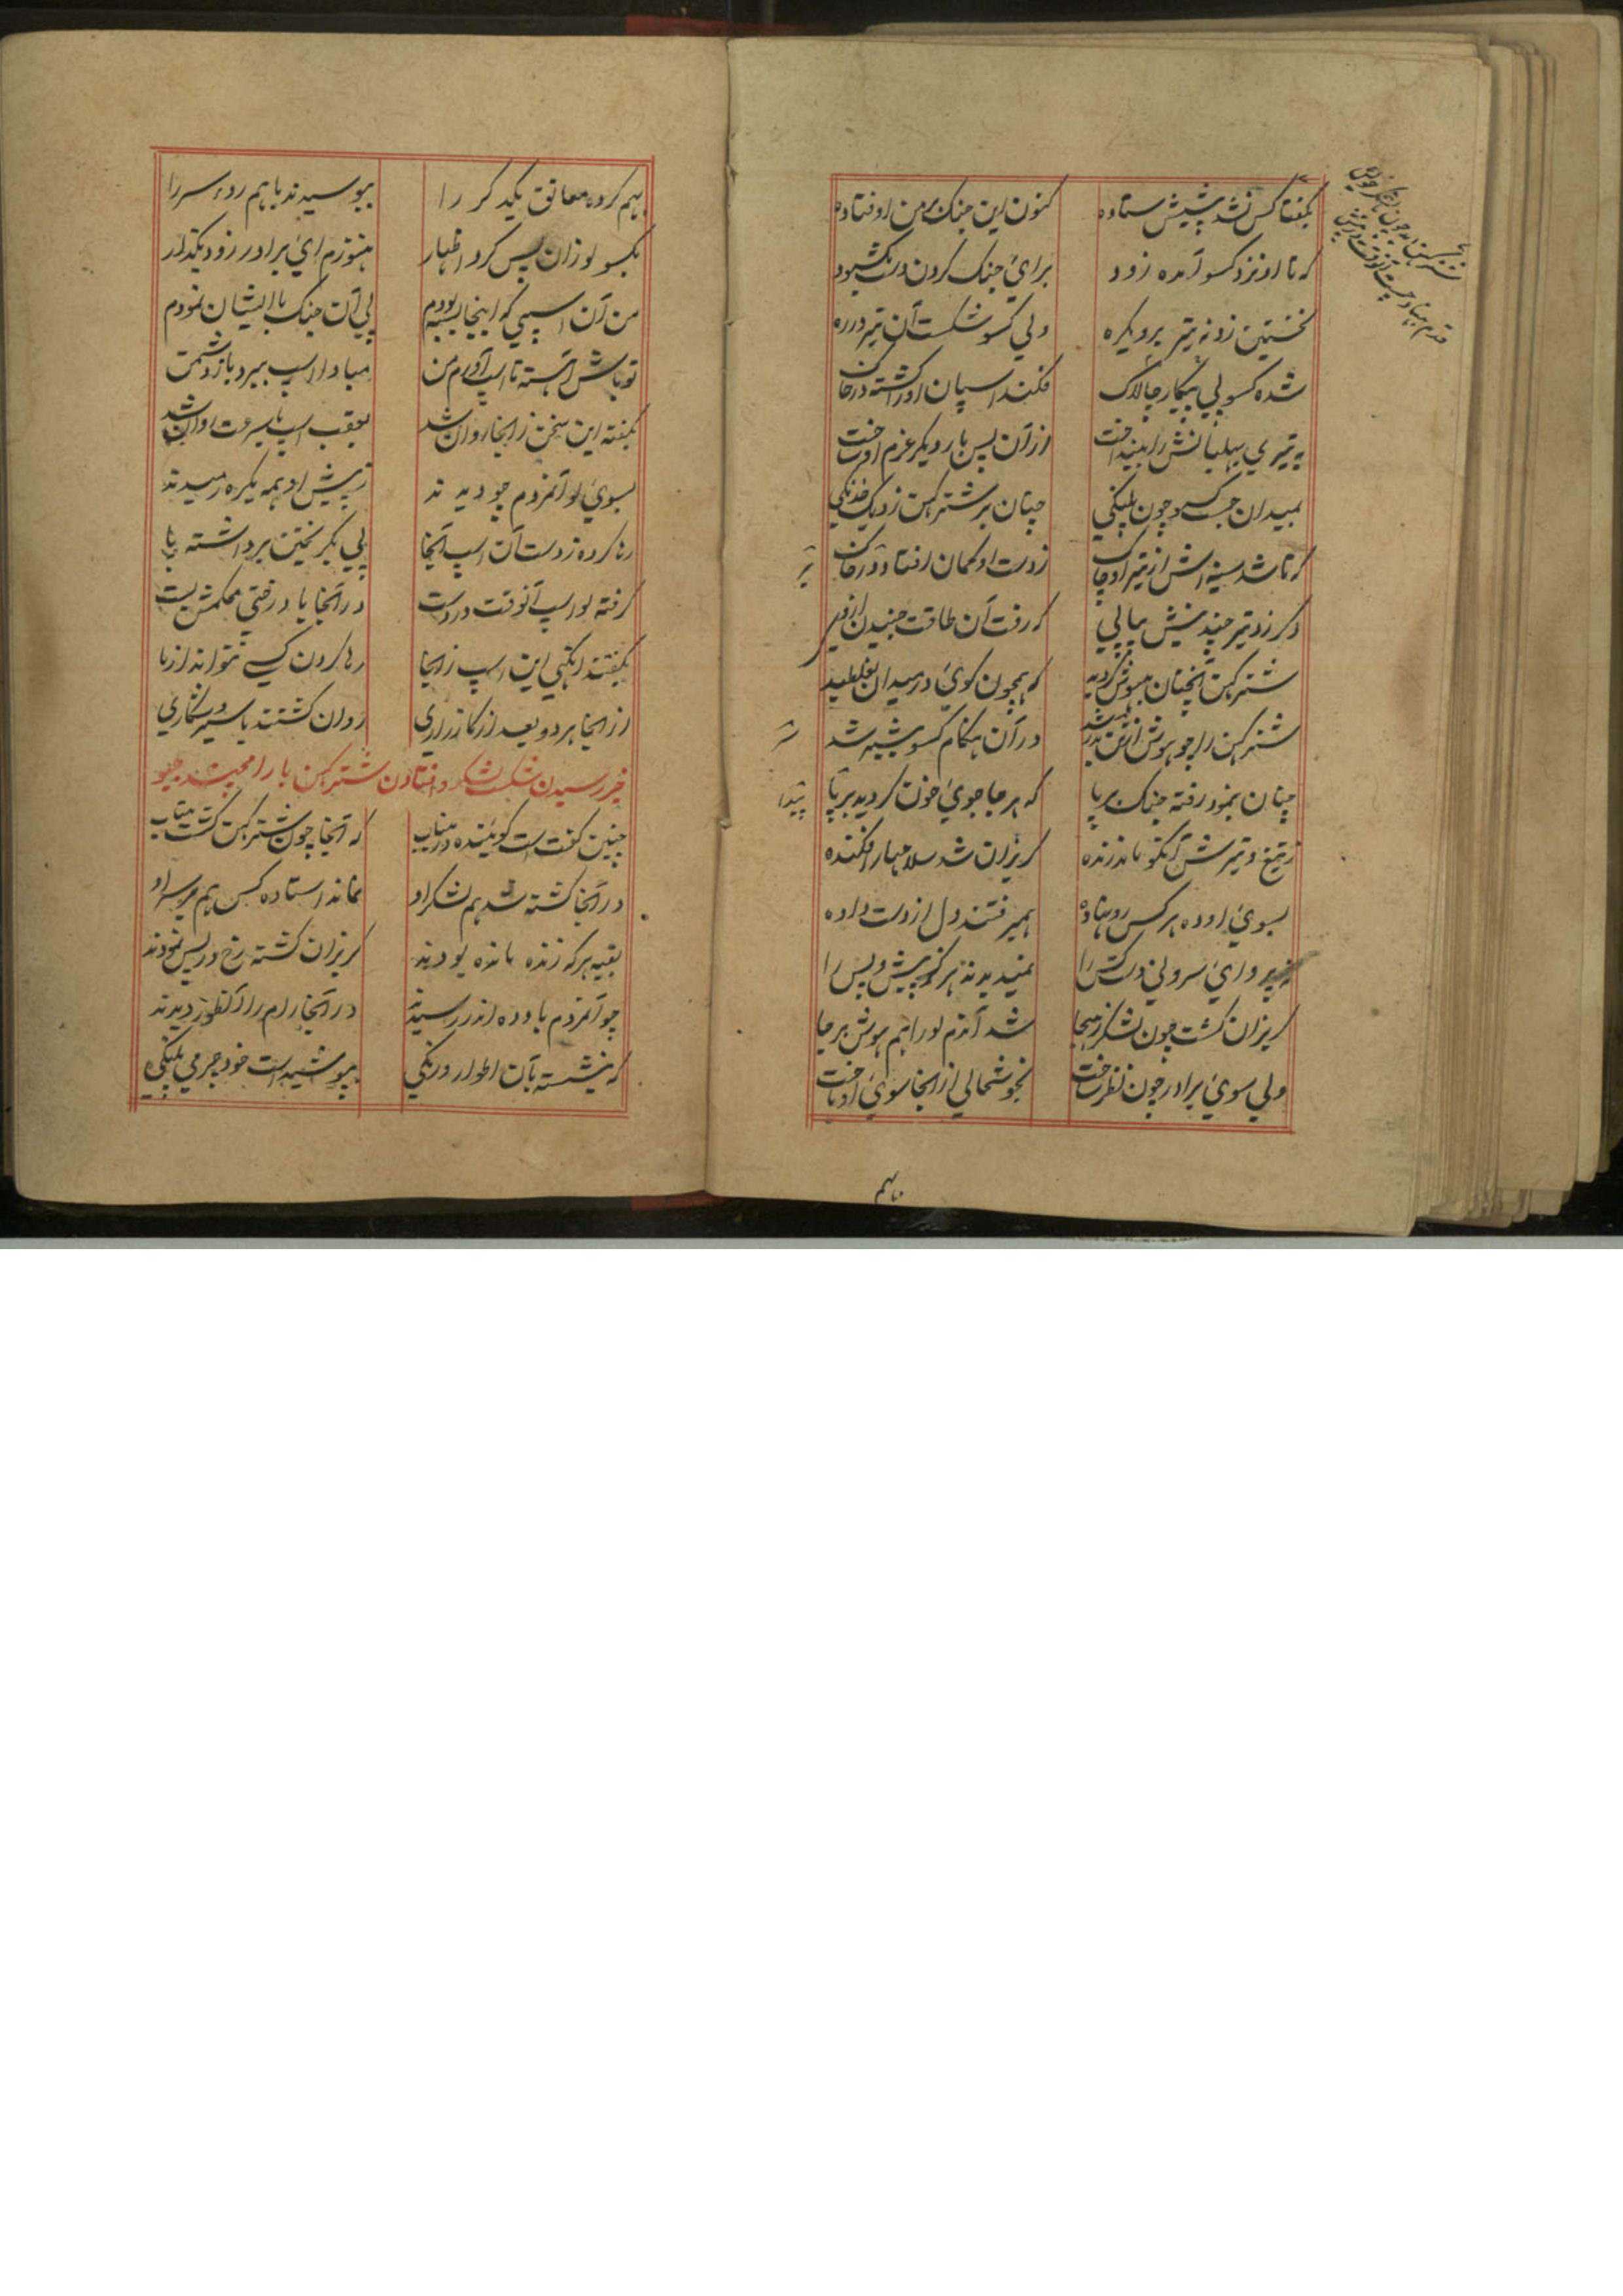 بگفتا کس نشد پیشش ستاده
کنون این جنک بر من اوفتاده
که تا او نزد کسو آمده زود
برای جنک کردن در بکشود
نخستین زد نه تیر بر و یکره
ولی کسو شکست آن تیر در ره
شده کسو پی پیکار چالاک
فکند اسپان او را کشته در خاک
به تیری بهلبانش را بینداخت
از آن پس بار دیکر عزم او ساخت
بمیدان جست کسو چون پلنکی
چنان بر شترکهن زد یک خدنکی
که تا شد سینه اش از تیر او چاک
ز دست او کمان افتاد در خاک
دکر زد تیر چندینش پیاپی
که رفت آن طاقت جنبیدن از وی
شترکهن آنچنان بیهوش کردید
که همچون کوی در میدان بغلطید
شترکهن را چو هوش از تن بدر شد
در آن هنکام کسو پیشه شد
چنان بنمود رفته جنک بر پا
که هر جا جوی خون کردید بر پا
ز تیغ و تیرش آنکو مانده زنده
کریزان شد سلاحها را فکنده
بسوی اوده هر کس رو نهاده
همیرفتند دل از دست داده
نه پروای سر و نی دست کس را
نمیدیدند هرکز پیش و پس را
کریزان کشت چون لشکر ز هیجا
شد آندم لو را هم هوش بر جا
ولی سوی برادر چون نظر ساخت
بخوشحالی از آنجا سوی او تاخت
باهم
بهم کرده معانق یکدکر را
ببوسیدند باهم روء سر را
بکسو لو زان پس کرد اظهار
هنوزم ای برادر زود بکذار
من آن اسپی که اینجا بسته بودم
پی آن جنک با ایشان نمودم
تو باش آهسته تا اسپ آورم من
مبادا اسپ ببرد باز دشمن
بکفته این سخن ز آنجا روان شد
بعقب اسپ با سرعت دوان شد
بسوی لو آنمردم چو دیدند
ز پیش او همه یکره رمیدند
رها کرده ز دست آن اسپ آنجا
پی بکریختن برداشته پا
کرفته لو اسپ آنوقت در دست
در آنجا با درختی محکمش بست
بکفتند اینکه این اسپ ز اینجا
رها کردن کسی نتواند از ما
از اینجا هر دو بعد از کارزاری
روان کشتند با سیر و شکاری
خبر رسیدن شکست لشکر و افتادن شترکهن با رامچندر جیو
چنین کفت است کوینده درین باب
که آنجا چون شترکهن کشت بیتاب
در آنجا کشته شد هم لشکر او
نماند استاده کس هم بر سر او
بقیه هر که زنده مانده بودند
کریزان کشته رخ در پس نمودند
چو آنمردم با وده اندر رسیدند
در آنجا رام را آنطور دیدند
که بنشسته بآن اطوار و رنکی
بپوشیدست خود چرمی پلنکی